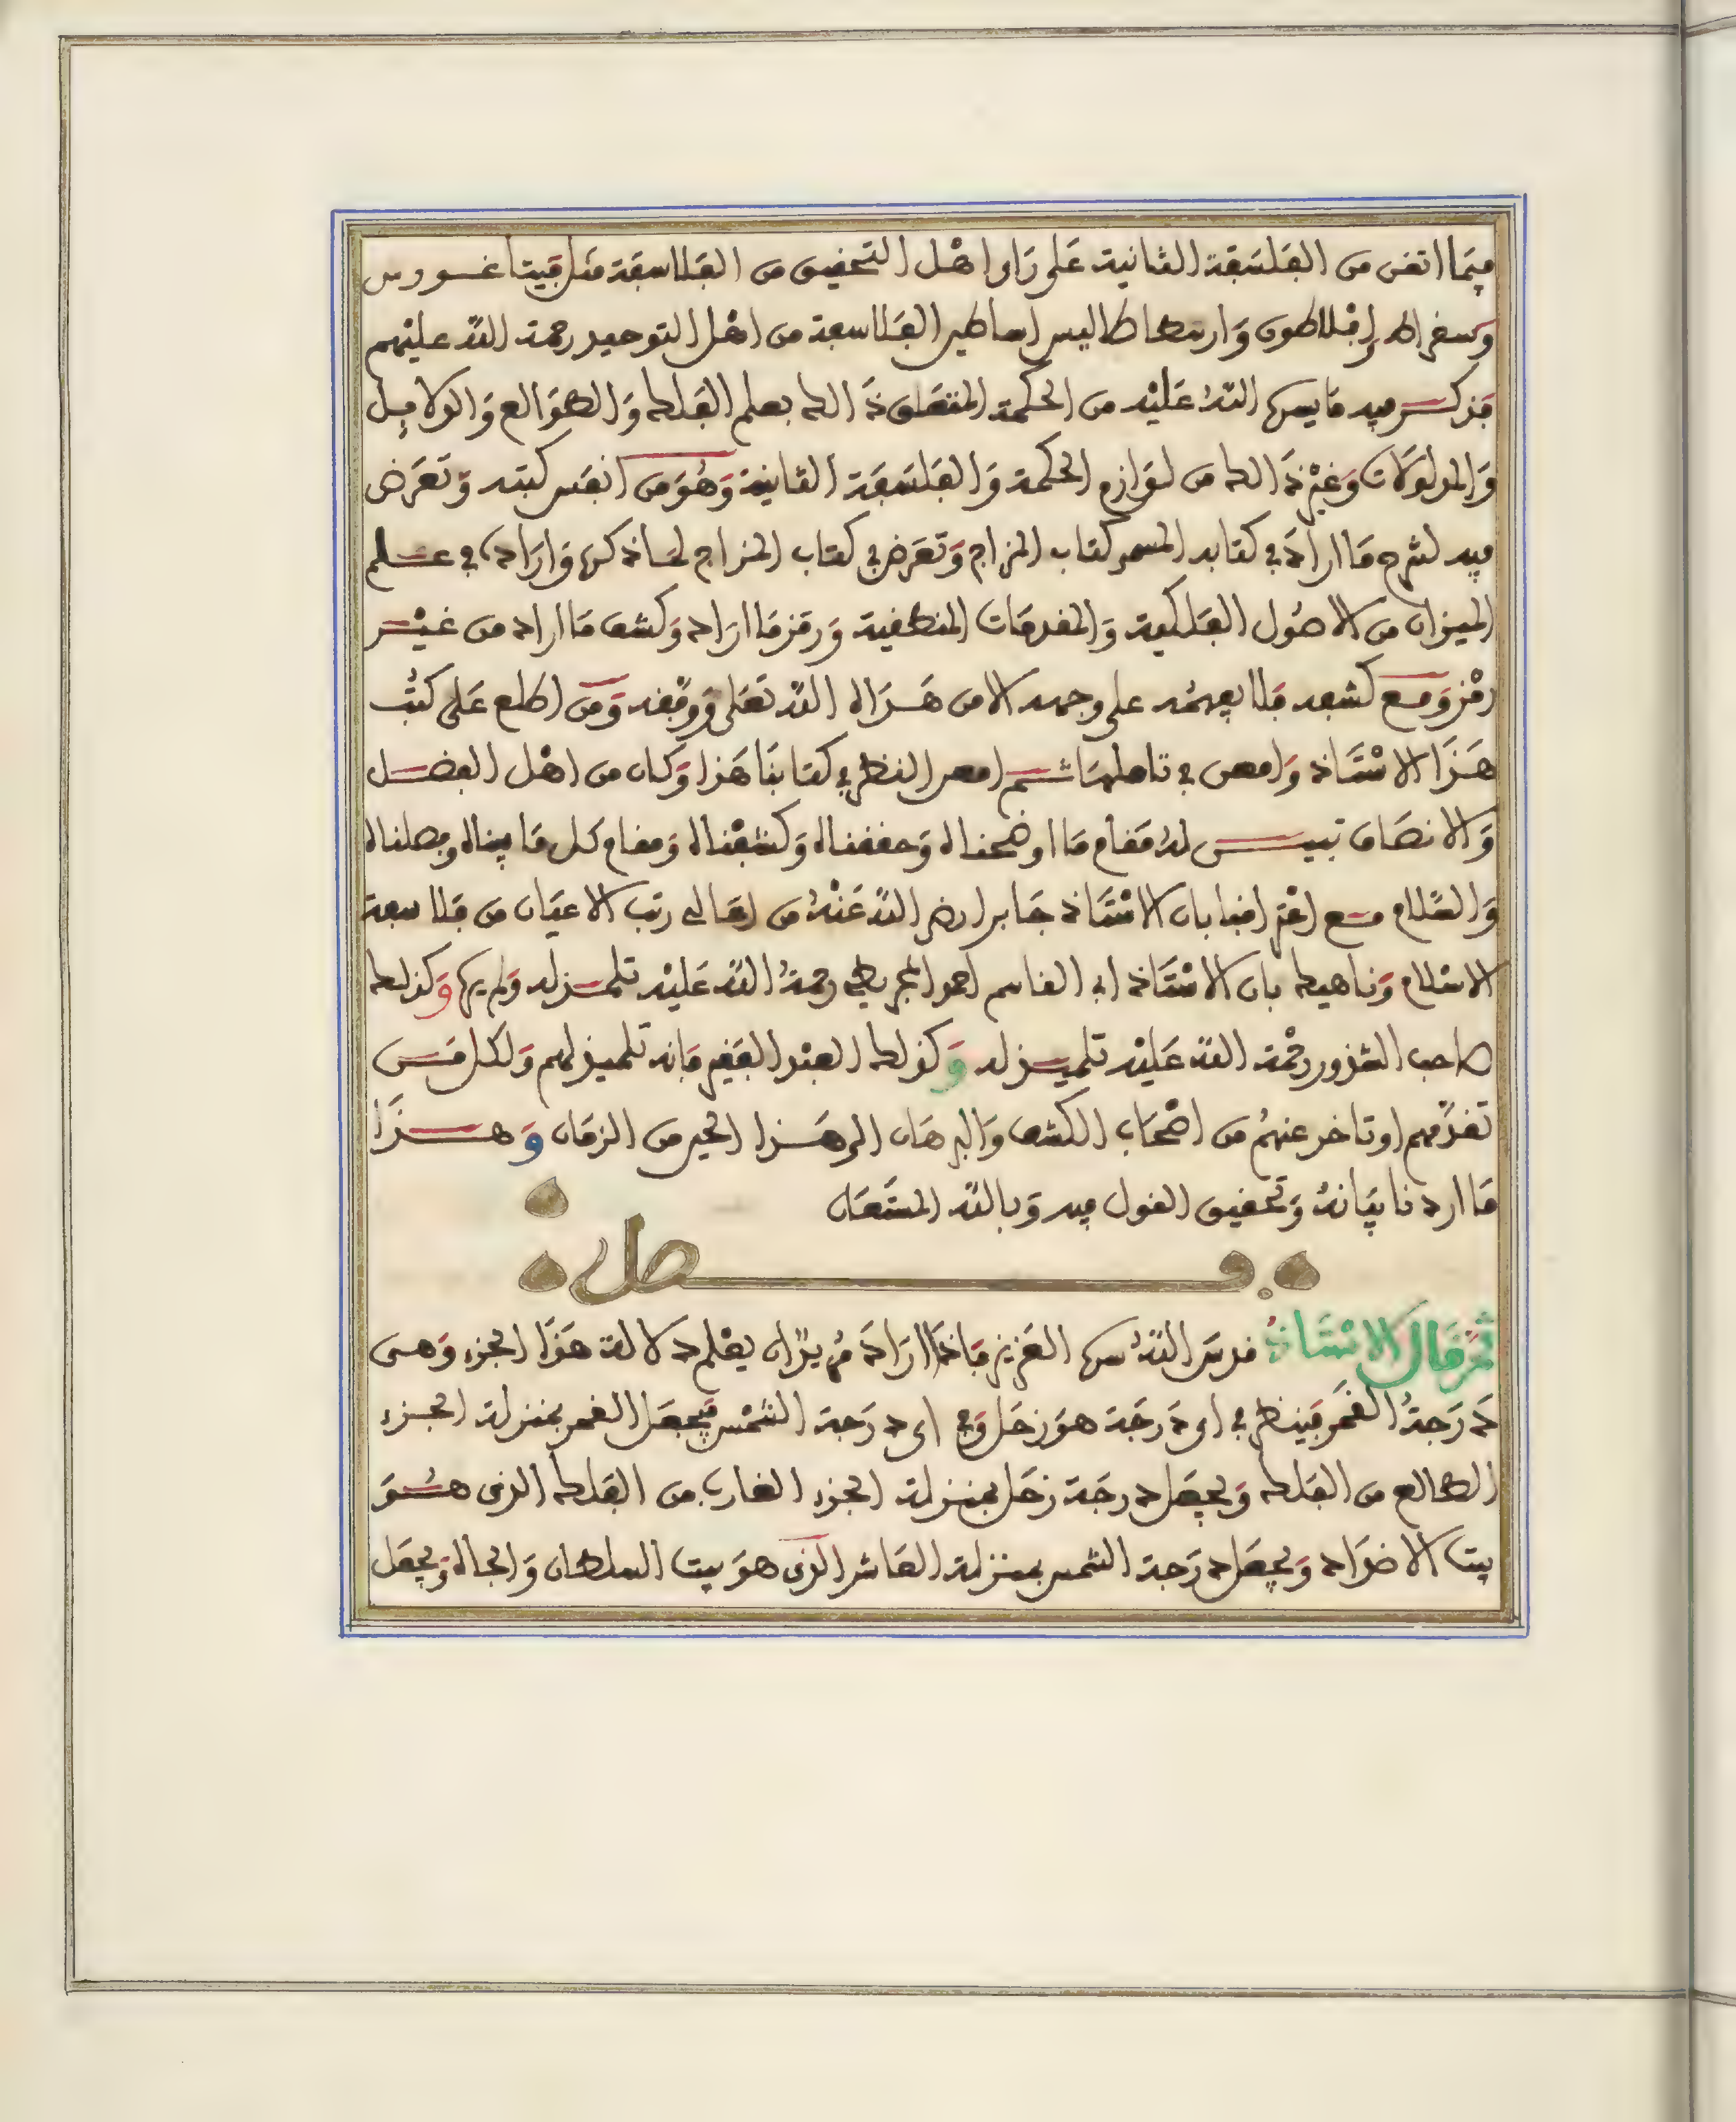 فيما اتفن من الفلسفة الثانية على راى اهل التحقيق من الفلاسفة مثل فيثاغورس
وسقراط وافلاطون وارسطاطاليس اساطير الفلاسفة من اهل التوحيد رحمة الله عليهم
فذكر فيه ما يسره الله عليه من الحكمة المتعلق ذالك بعلم الفلك والطوالع والدلايل
والمدلولات وغير ذالك من لوازم الحكمة والفلسفة الثانية وهو من انفس كتبه وتعرض
فيه لشرح ما اراد في كتابه المسمى كتاب المزاج وتعرض في كتاب المزاج لما ذكره واراده في علم
الميزان من الاصول الفلكية والمقدمات المنطقية ورمز ما اراد وكشف ما اراد من غير
رمز ومع كشفه فلا يفهمه على وجهه الا من هداه الله تعلى ووفقه ومن اطلع على كتب
هذا الاستاذ وامعن في تاملها ثم امعن النظر في كتابنا هذا وكان من اهل الفضل
والانصاف تبين له مقام ما اوضحناه وحققناه وكشفناه ومقام كل ما بيناه وفصلناه
والسلام مع اعترافنا بان الاستاذ جابرا رضى الله عنه من اعالى رتب الاعيان من فلاسفة
الاسلام وناهيك بان الاستاذ ابى القاسم احمد المجريطى رحمة الله عليه تلميذ له ولم يره وكذلك
صاحب الشذور رحمة الله عليه تلميذ له وكذلك العبد الفقير فانه تلميذ لهم ولكل من
تقدمهم او تاخر عنهم من اصحاب الكشف والبرهان الى هذا الحين من الزمان وهذا
ما اردنا بيانه وتحقيق القول فيه وبالله المستعان
فصل
ثم قال الاستاذ قدس الله سره العزيز فاذا اراد مريد ان يعلم دلالة هذا الجزء وهى
درجة القمر فينظر في اى درجة هو زحل وفي اى درجة الشمس فيجعل القمر بمنزلة الجزء
الطالع من الفلك ويجعل درجة زحل بمنزلة الجزء الغارب من الفلك الذى هو
بيت الاضداد ويجعل درجة الشمس بمنزلة العاشر الذى هو بيت السلطان والجاه ويجعل